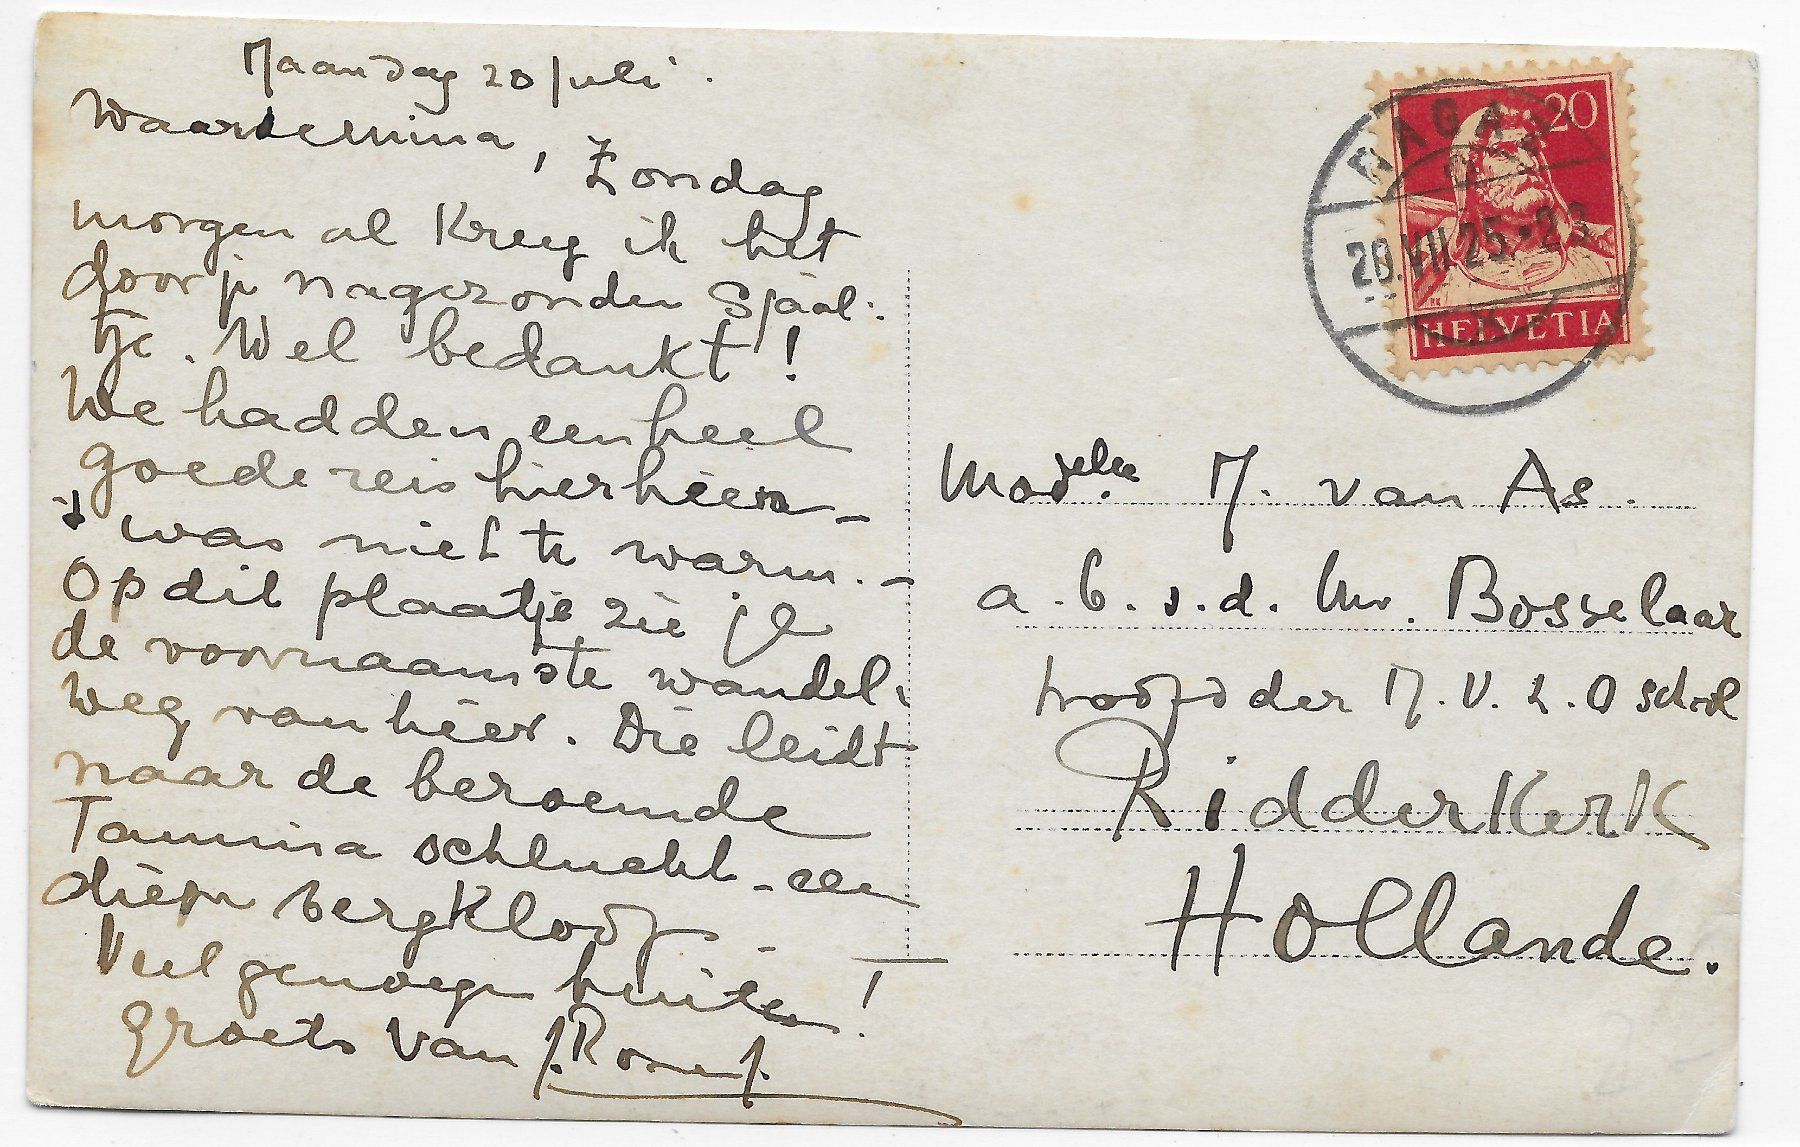 Maandag 20 Juli.
Waarde Mina, Zondag
morgen al Kreeg ik het
door je nagezonden Sjaal-
tje. Wel bedankt!
We hadden een heel
goede reis hierheen –
't was niet te warm. –
Op dit plaatje zie je
de voornaamste wandel-
weg van hier. Die leidt
naar de beroemde
Tamina schlucht – een
diepe bergkloof.
Veel genoegen buiten!
groets van J.
RAGAZ
20.VII.25.-23
20
HELVETIA
M. van As.
a. b. v. d. Hr. Bosselaar
hoofd der M.U.L.O school
Ridderkerk
Hollande.